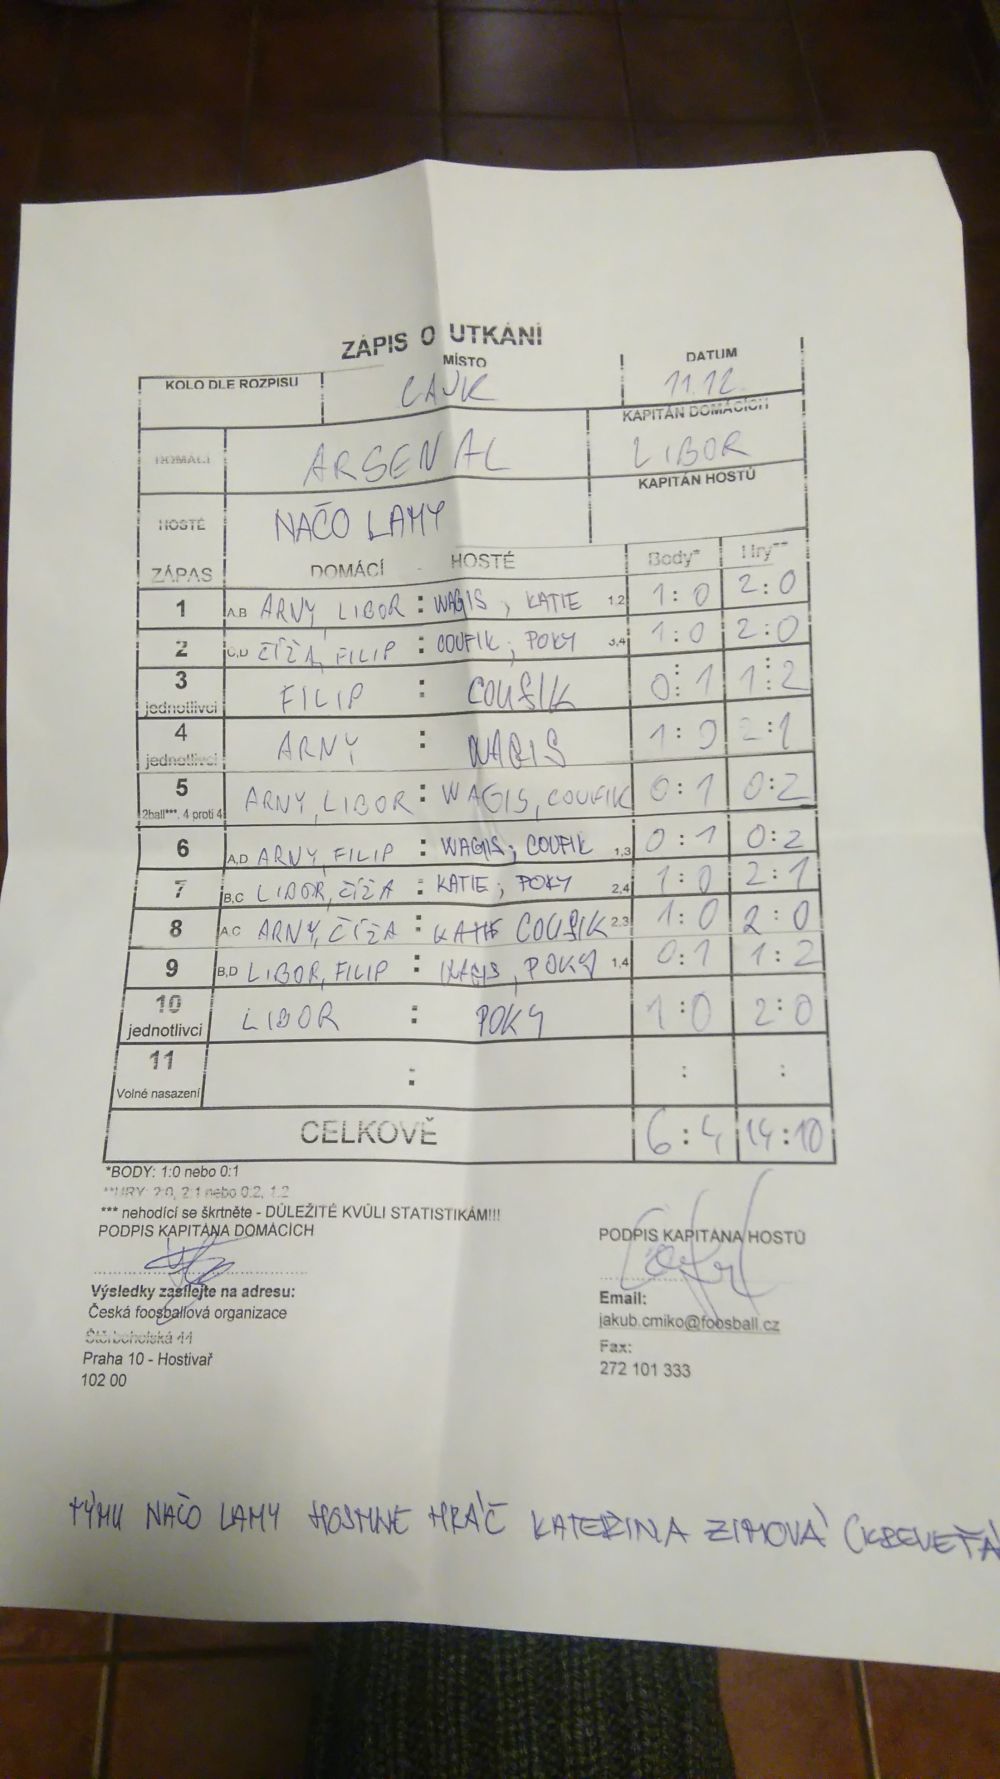 ZÁPIS O UTKÁNÍ
KOLO DLE ROZPISU MÍSTO DATUM
CAVK 11.12.
DOMÁCÍ ARSENAL KAPITÁN DOMÁCÍCH LIBOR
HOSTÉ NAČO LAMY KAPITÁN HOSTŮ
ZÁPAS DOMÁCÍ - HOSTÉ Body* Hry**
1 A,B ARNY, LIBOR : WAGIS, KATIE 1,2 1:0 2:0
2 C,D ČÍŽA, FILIP : COUFIK; POKY 3,4 1:0 2:0
3 jednotlivci FILIP : COUFIK 0:1 1:2
4 jednotlivci ARNY : WAGIS 1:0 2:1
5 2ball***, 4 proti 4 ARNY, LIBOR : WAGIS, COUFIK 0:1 0:2
6 A,D ARNY, FILIP : WAGIS; COUFIK 1,3 0:1 0:2
7 B,C LIBOR, ČÍŽA : KATIE; POKY 2,4 1:0 2:1
8 A,C ARNY, ČÍŽA : KATIE COUFIK 2,3 1:0 2:0
9 B,D LIBOR, FILIP : WAGIS, POKY 1,4 0:1 1:2
10 jednotlivci LIBOR : POKY 1:0 2:0
11 Volné nasazení : : :
CELKOVĚ 6:4 14:10
*BODY: 1:0 nebo 0:1
**HRY: 2:0, 2:1 nebo 0:2, 1:2
*** nehodící se škrtněte - DŮLEŽITÉ KVŮLI STATISTIKÁM!!!
PODPIS KAPITÁNA DOMÁCÍCH PODPIS KAPITÁNA HOSTŮ
Výsledky zasílejte na adresu: Email:
Česká foosballová organizace jakub.cmiko@foosball.cz
Štěrboholská 44 Fax:
Praha 10 - Hostivař 272 101 333
102 00
TÝMU NAČO LAMY HRÁČ KATEŘINA ZIMOVÁ